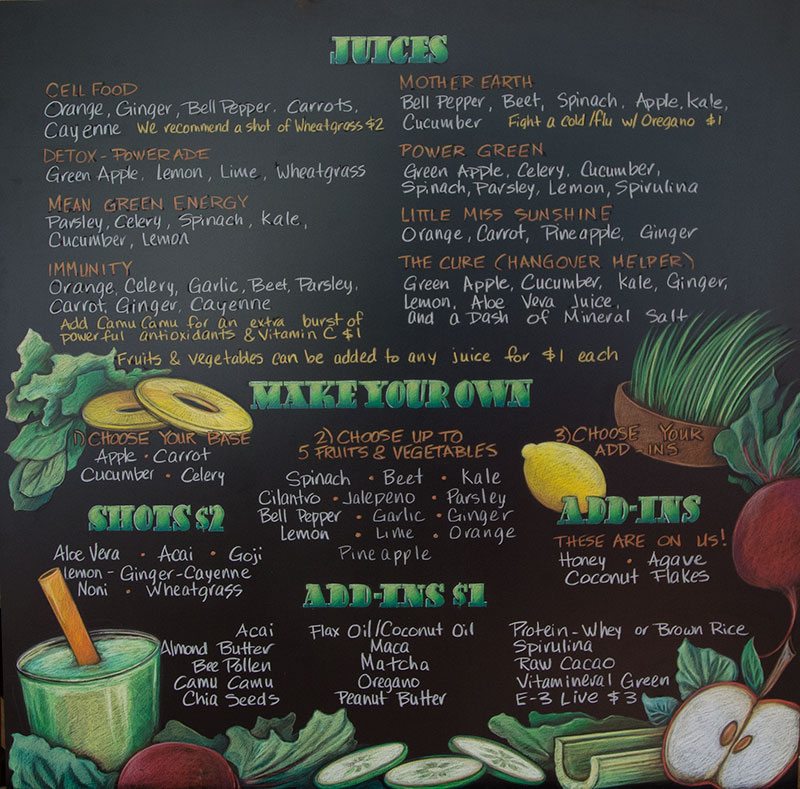 JUICES
CELL FOOD
Orange, Ginger, Bell Pepper, Carrots,
Cayenne We recommend a shot of Wheatgrass $2
DETOX-POWERADE
Green Apple, Lemon, Lime, Wheatgrass
MEAN GREEN ENERGY
Parsley, Celery, Spinach, Kale,
Cucumber, Lemon
IMMUNITY
Orange, Celery, Garlic, Beet, Parsley,
Carrot, Ginger, Cayenne
Add Camu Camu for an extra burst of
powerful antioxidants & Vitamin C $1
MOTHER EARTH
Bell Pepper, Beet, Spinach, Apple, Kale,
Cucumber Fight a cold/flu w/ Oregano $1
POWER GREEN
Green Apple, Celery, Cucumber,
Spinach, Parsley, Lemon, Spirulina
LITTLE MISS SUNSHINE
Orange, Carrot, Pineapple, Ginger
THE CURE (HANGOVER HELPER)
Green Apple, Cucumber, Kale, Ginger,
Lemon, Aloe Vera Juice,
and a Dash of Mineral Salt
Fruits & vegetables can be added to any juice for $1 each
MAKE YOUR OWN
1) CHOOSE YOUR BASE
Apple • Carrot
Cucumber • Celery
2) CHOOSE UP TO
5 FRUITS & VEGETABLES
Spinach • Beet • Kale
Cilantro • Jalepeno • Parsley
Bell Pepper • Garlic • Ginger
Lemon • Lime • Orange
Pineapple
3) CHOOSE YOUR
ADD-INS
ADD-INS
THESE ARE ON US!
Honey • Agave
Coconut Flakes
SHOTS $2
Aloe Vera • Acai • Goji
lemon - Ginger-Cayenne
Noni • Wheatgrass
ADD-INS $1
Acai
Almond Butter
Bee Pollen
Camu Camu
Chia Seeds
Flax Oil/Coconut Oil
Maca
Matcha
Oregano
Peanut Butter
Protein-Whey or Brown Rice
Spirulina
Raw Cacao
Vitamineral Green
E-3 Live $3